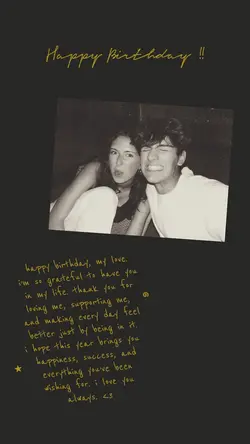 Happy Birthday !!
happy birthday, my love.
i'm so grateful to have you
in my life. thank you for
loving me, supporting me,
and making every day feel
better just by being in it.
i hope this year brings you
happiness, success, and
everything you've been
wishing for. i love you
always. <3